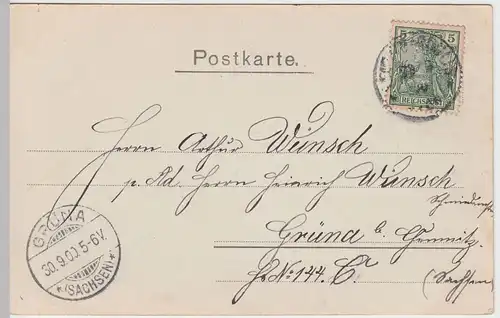 Postkarte.
5 5
REICHSPOST
Herrn Arthur Wünsch
p. Ad. Herrn Heinrich Wünsch
Grüna b. Chemnitz.
Hs. No 144. C. (Sachsen)
GRÜNA
30.9.00.5-6V.
*(SACHSEN)*